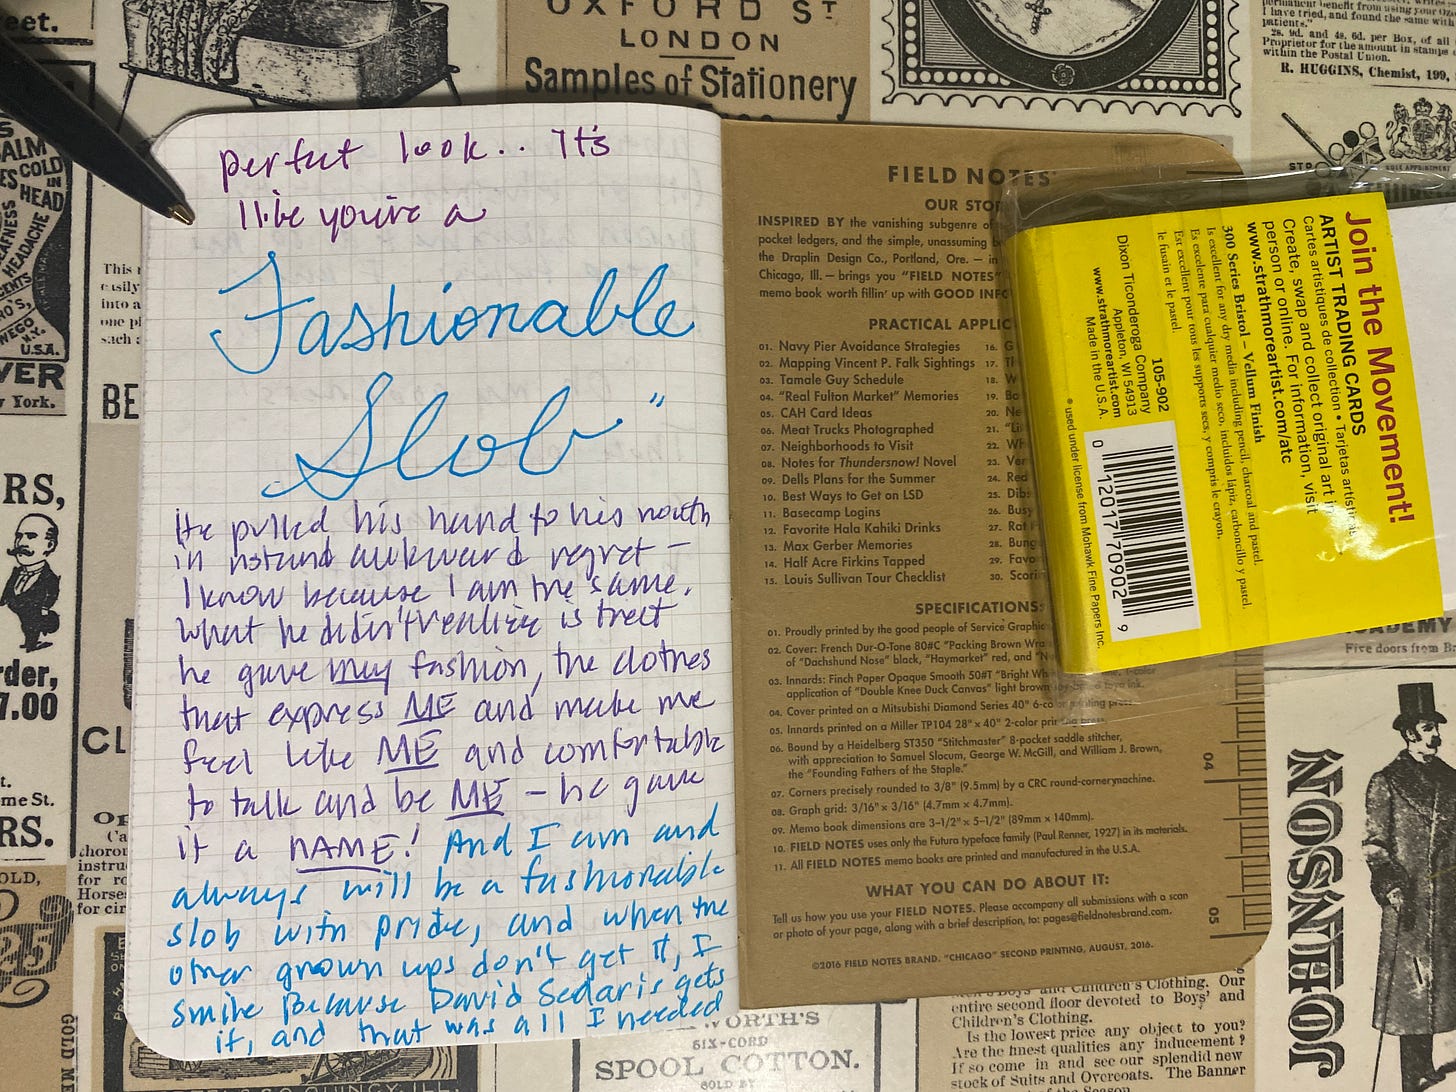 perfect look.. It's
like you're a
Fashionable
Slob"
He pulled his hand to his mouth
in instant awkward regret –
I know because I am the same.
What he didn't realize is that
he gave my fashion, the clothes
that express ME and make me
feel like ME and comfortable
to talk and be ME – he gave
it a NAME! And I am and
always will be a fashionable
slob with pride, and when the
other grown ups don't get it, I
smile Because David Sedaris gets
it, and that was all I needed
FIELD NOTES
OUR STOR
INSPIRED BY the vanishing subgenre of
pocket ledgers, and the simple, unassuming b
the Draplin Design Co., Portland, Ore. — in
Chicago, Ill. — brings you "FIELD NOTES"
memo book worth fillin' up with GOOD INFO
PRACTICAL APPLIC
01. Navy Pier Avoidance Strategies
02. Mapping Vincent P. Falk Sightings
03. Tamale Guy Schedule
04. "Real Fulton Market" Memories
05. CAH Card Ideas
06. Meat Trucks Photographed
07. Neighborhoods to Visit
08. Notes for Thundersnow! Novel
09. Dells Plans for the Summer
10. Best Ways to Get on LSD
11. Basecamp Logins
12. Favorite Hala Kahiki Drinks
13. Max Gerber Memories
14. Half Acre Firkins Tapped
15. Louis Sullivan Tour Checklist
16. G
17. Th
18. W
19. Bo
20. Ne
21. "Li
22. Wh
23. Ver
24. Red
25. Dibs
26. Busy
27. Rat H
28. Bung
29. Favo
30. Scori
SPECIFICATIONS:
01. Proudly printed by the good people of Service Graphic
02. Cover: French Dur-O-Tone 80#C "Packing Brown Wra
of "Dachshund Nose" black, "Haymarket" red, and "N
03. Innards: Finch Paper Opaque Smooth 50#T "Bright Wh
application of "Double Knee Duck Canvas" light brown ink.
04. Cover printed on a Mitsubishi Diamond Series 40" 6-color printing press.
05. Innards printed on a Miller TP104 28" x 40" 2-color printing press.
06. Bound by a Heidelberg ST350 "Stitchmaster" 8-pocket saddle stitcher,
with appreciation to Samuel Slocum, George W. McGill, and William J. Brown,
the "Founding Fathers of the Staple."
07. Corners precisely rounded to 3/8" (9.5mm) by a CRC round-cornermachine.
08. Graph grid: 3/16" x 3/16" (4.7mm x 4.7mm).
09. Memo book dimensions are 3-1/2" x 5-1/2" (89mm x 140mm).
10. FIELD NOTES uses only the Futura typeface family (Paul Renner, 1927) in its materials.
11. All FIELD NOTES memo books are printed and manufactured in the U.S.A.
WHAT YOU CAN DO ABOUT IT:
Tell us how you use your FIELD NOTES. Please accompany all submissions with a scan
or photo of your page, along with a brief description, to: pages@fieldnotesbrand.com.
©2016 FIELD NOTES BRAND. "CHICAGO" SECOND PRINTING, AUGUST, 2016.
04
05
Join the Movement!
ARTIST TRADING CARDS
Cartes artistiques de collection • Tarjetas artístic
Create, swap and collect original art in
person or online. For information, visit
www.strathmoreartist.com/atc
300 Series Bristol – Vellum Finish
Is excellent for any dry media including pencil, charcoal and pastel.
Es excelente para cualquier medio seco, incluidos lápiz, carboncillo y pastel.
Est excellent pour tous les supports secs, y compris le crayon,
le fusain et le pastel.
105-902
Dixon Ticonderoga Company
Appleton, WI 54913
www.strathmoreartist.com
Made in the U.S.A.
0 12017 70902 9
® used under license from Mohawk Fine Papers Inc.
OXFORD ST
LONDON
Samples of Stationery
I have tried, and found the same with
patients."
2s. 9d. and 4s. 6d. per Box, of all
Proprietor for the amount in stamps
within the Postal Union.
R. HUGGINS, Chemist, 199,
Five doors from
JOHNSON
Children's Clothing. Our
entire second floor devoted to Boys' and
Children's Clothing.
Is the lowest price any object to you?
Are the finest qualities any inducement?
If so come in and see our splendid new
stock of Suits and Overcoats. The Banner
SIX-CORD
SPOOL COTTON.
SOLD BY
QUINCY, ILL.
GOLD
COLD
IN
HEAD
HEADACHE
U.S.A.
York.
7.00